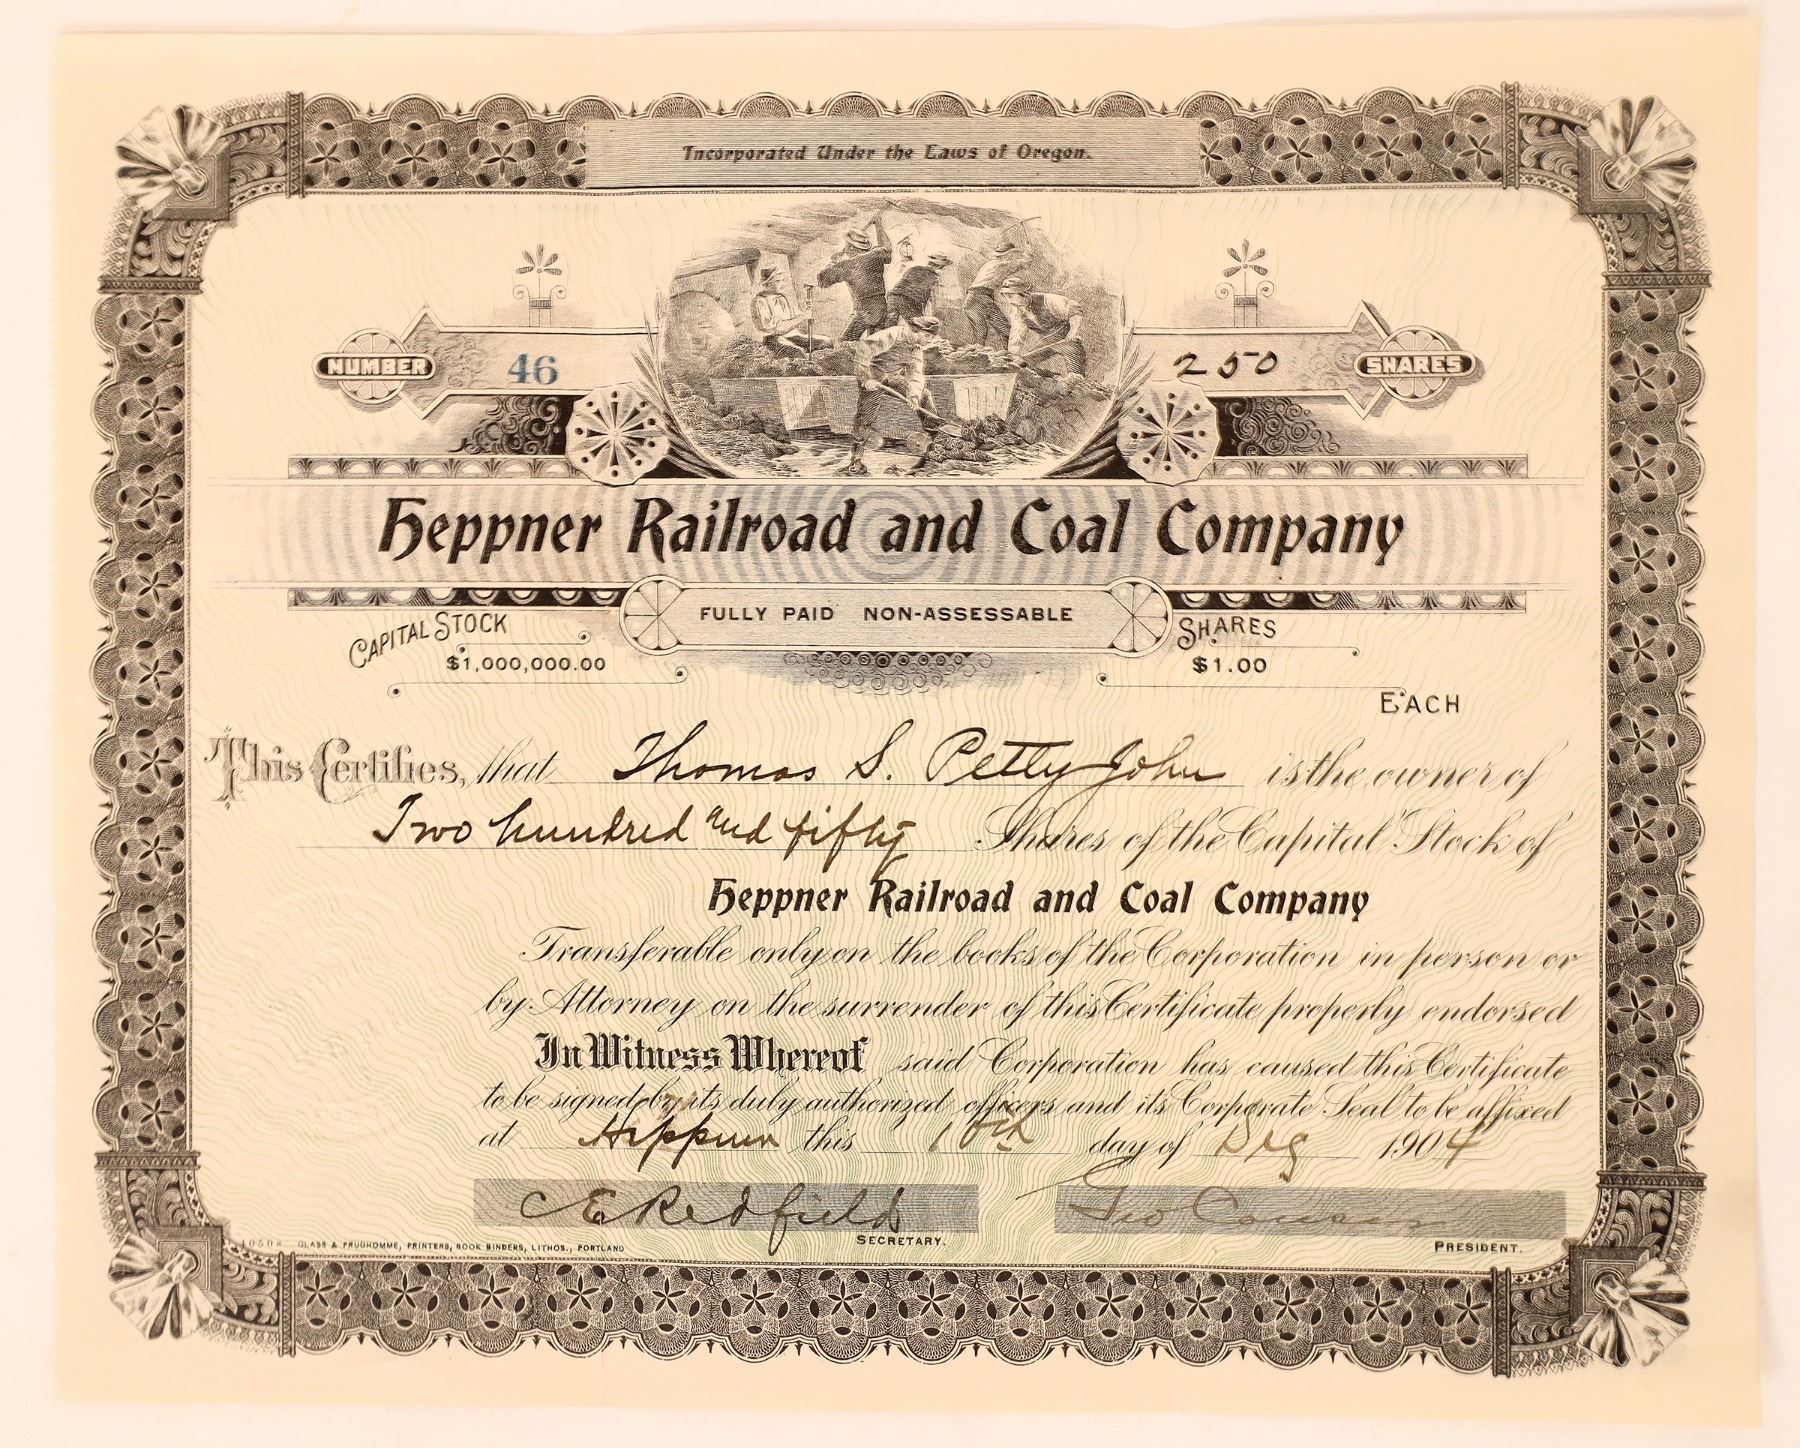 Incorporated Under the Laws of Oregon.
NUMBER 46 250 SHARES
Heppner Railroad and Coal Company
FULLY PAID NON-ASSESSABLE
CAPITAL STOCK SHARES
$1,000,000.00 $1.00
EACH
This Certifies, that Thomas S. Petty John is the owner of
Two hundred and fifty Shares of the Capital Stock of
Heppner Railroad and Coal Company
Transferable only on the books of the Corporation in person or
by Attorney on the surrender of this Certificate properly endorsed
In Witness Whereof said Corporation has caused this Certificate
to be signed by its duly authorized officers and its Corporate Seal to be affixed
at Heppner this day of 1904
C E Redfield Geo Conser
SECRETARY.
PRESIDENT.
GLASS & PRUDHOMME, PRINTERS, BOOK BINDERS, LITHOS., PORTLAND